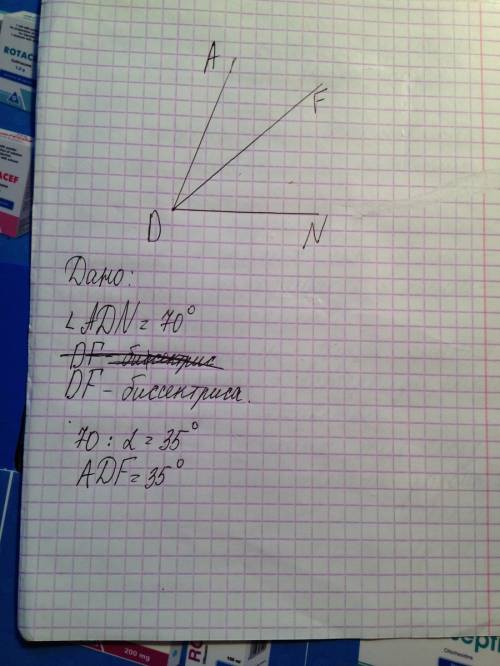 ROTACEF
ACEF
A
F
D
N
Дано:
∠ADN = 70°
DF - биссектрис
DF - биссектриса.
70 : 2 = 35°
ADF = 35°
200 mg